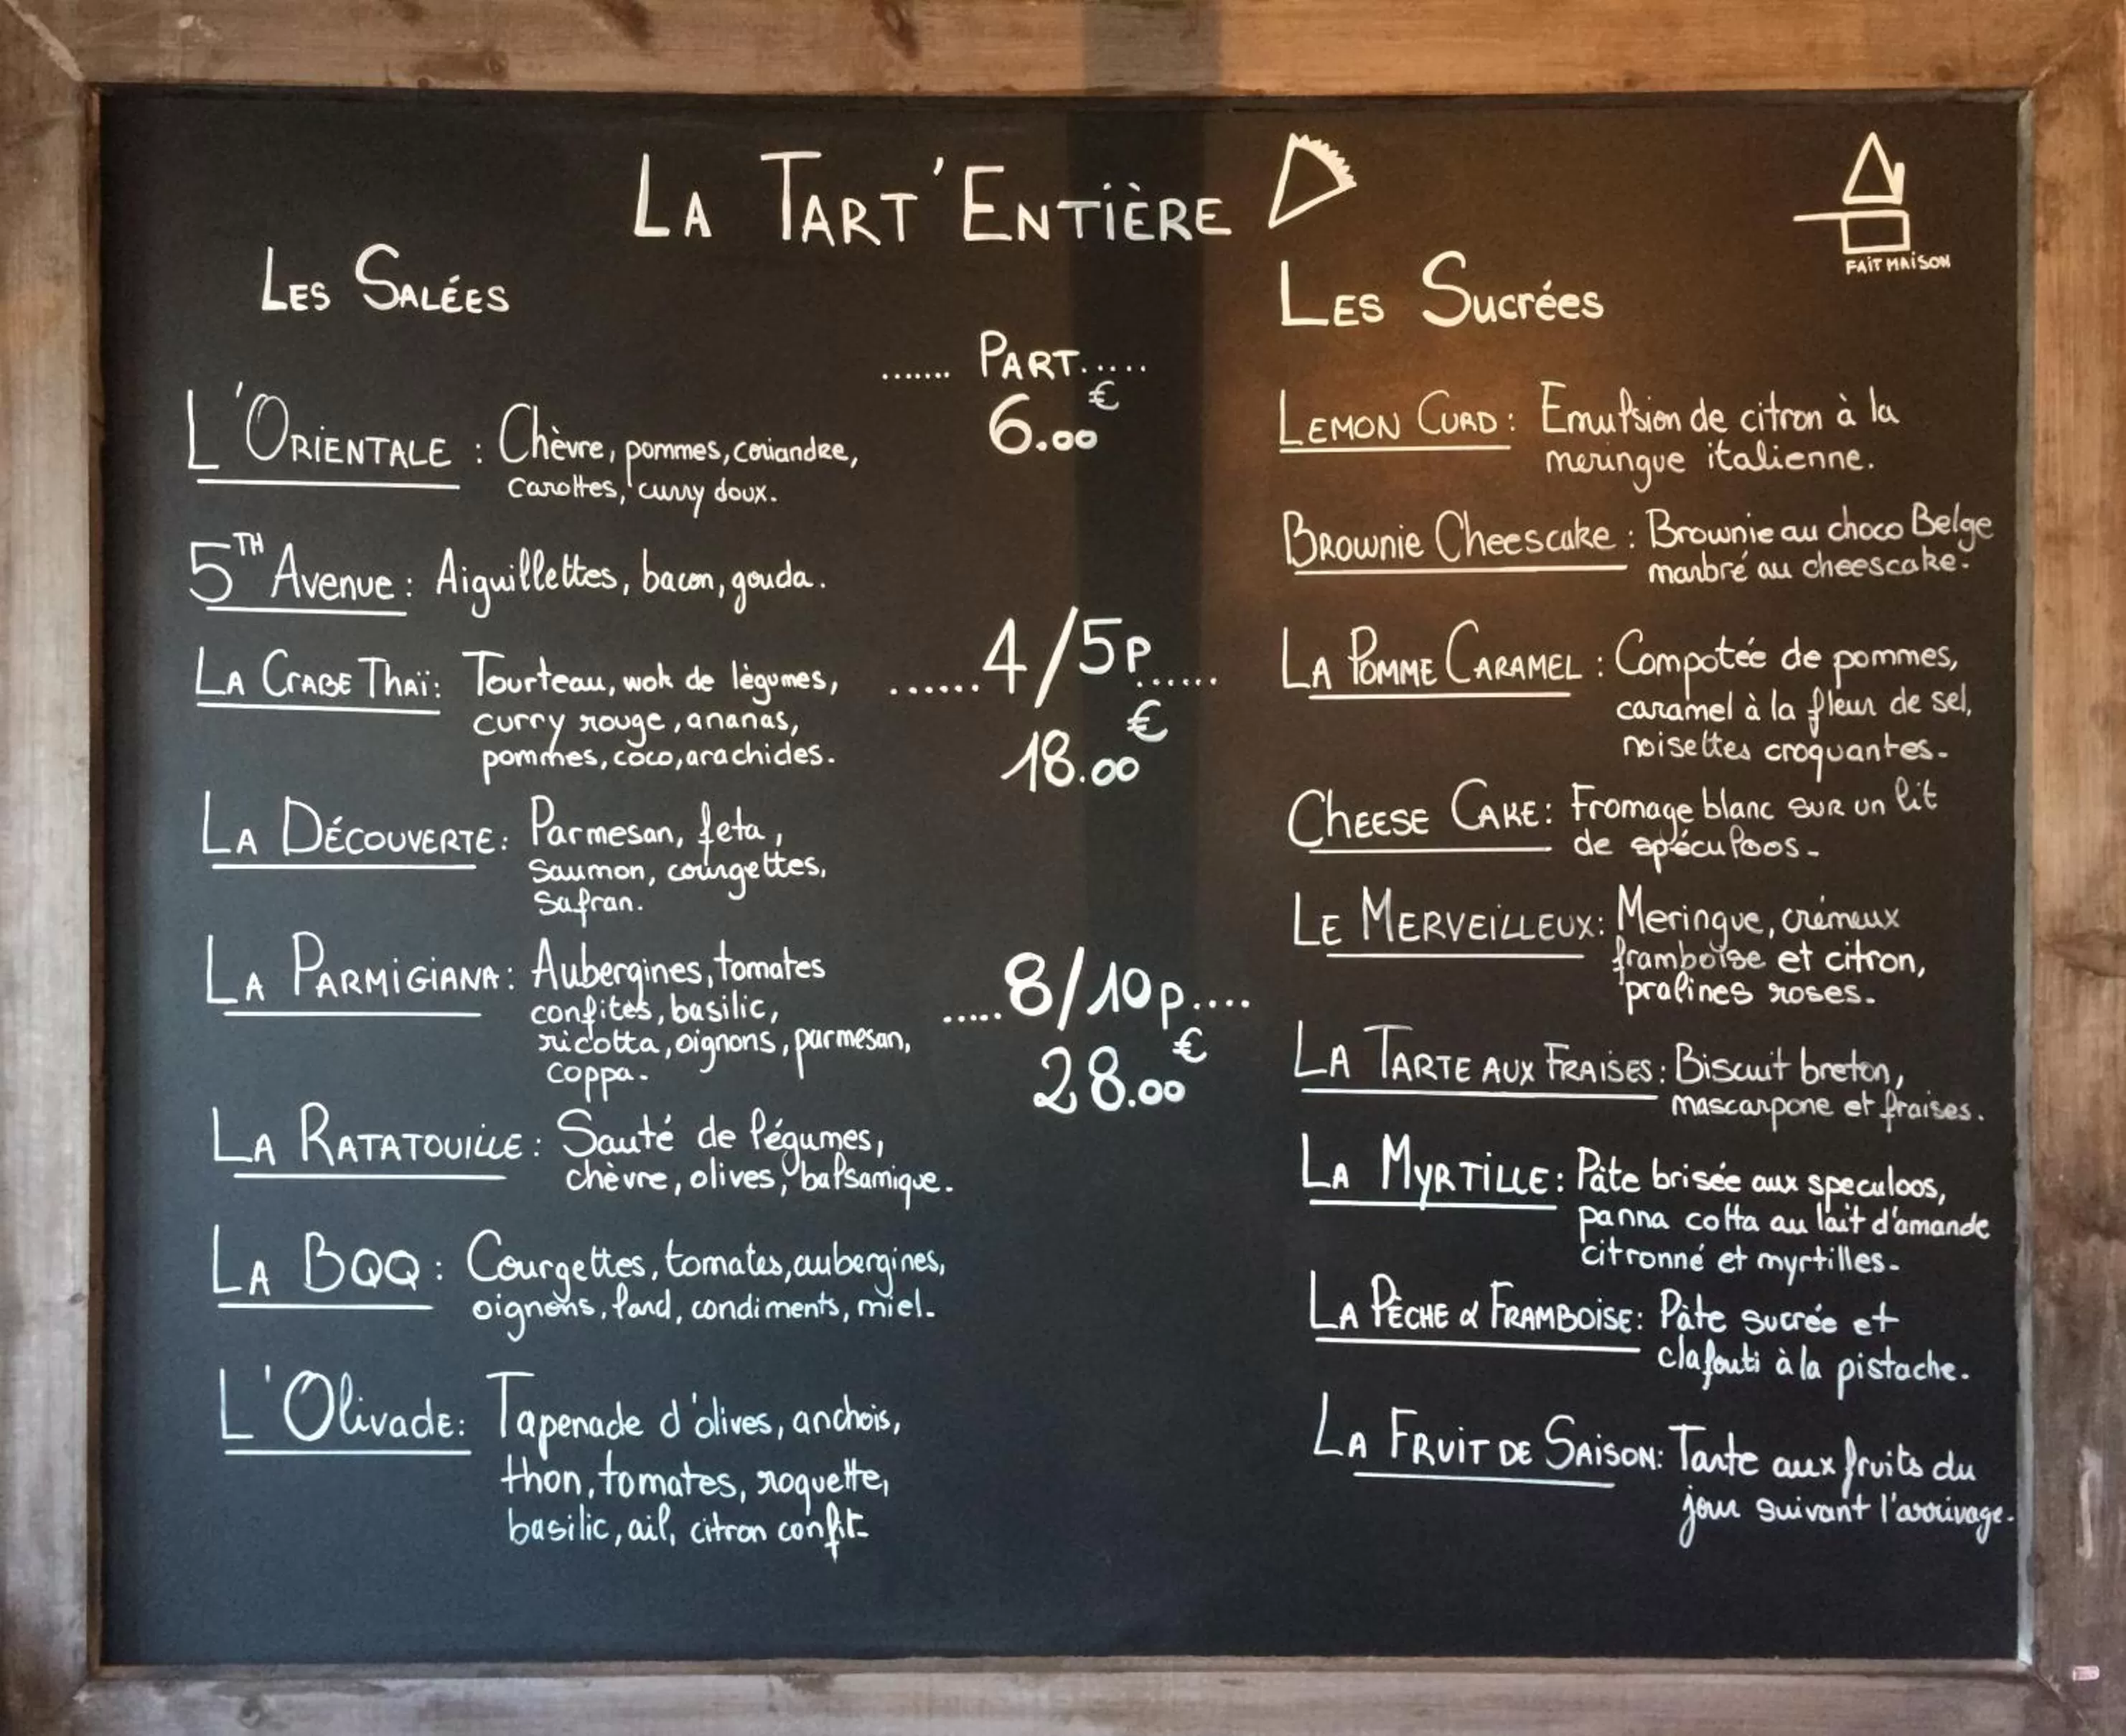 LA TART'ENTIÈRE
FAIT MAISON
LES SALÉES
L'ORIENTALE : Chèvre, pommes, coriandre,
carottes, curry doux.
5TH Avenue : Aiguillettes, bacon, gouda.
LA CRABE THAÏ : Tourteau, wok de légumes,
curry rouge, ananas,
pommes, coco, arachides.
LA DÉCOUVERTE : Parmesan, feta,
Saumon, courgettes,
Safran.
LA PARMIGIANA : Aubergines, tomates
confites, basilic,
ricotta, oignons, parmesan,
coppa.
LA RATATOUILLE : Sauté de légumes,
chèvre, olives, balsamique.
LA BQQ : Courgettes, tomates, aubergines,
oignons, lard, condiments, miel.
L'Olivade : Tapenade d'olives, anchois,
thon, tomates, roquette,
basilic, ail, citron confit
....... PART.....
6.00 €
......4/5P......
18.00 €
.....8/10p....
28.00 €
LES Sucrées
LEMON CURD : Emulsion de citron à la
meringue italienne.
BROWNIE CHEESCAKE : Brownie au choco Belge
marbré au cheescake.
LA POMME CARAMEL : Compotée de pommes,
caramel à la fleur de sel,
noisettes croquantes.
CHEESE CAKE : Fromage blanc SUR un lit
de spéculoos.
LE MERVEILLEUX : Meringue, crémeux
framboise et citron,
pralines roses.
LA TARTE AUX FRAISES : Biscuit breton,
mascarpone et fraises.
LA MYRTILLE : Pâte brisée aux speculoos,
panna cotta au lait d'amande
citronné et myrtilles.
LA PÈCHE & FRAMBOISE : Pâte sucrée et
clafouti à la pistache.
LA FRUIT DE SAISON : Tarte aux fruits du
jour suivant l'arrivage.